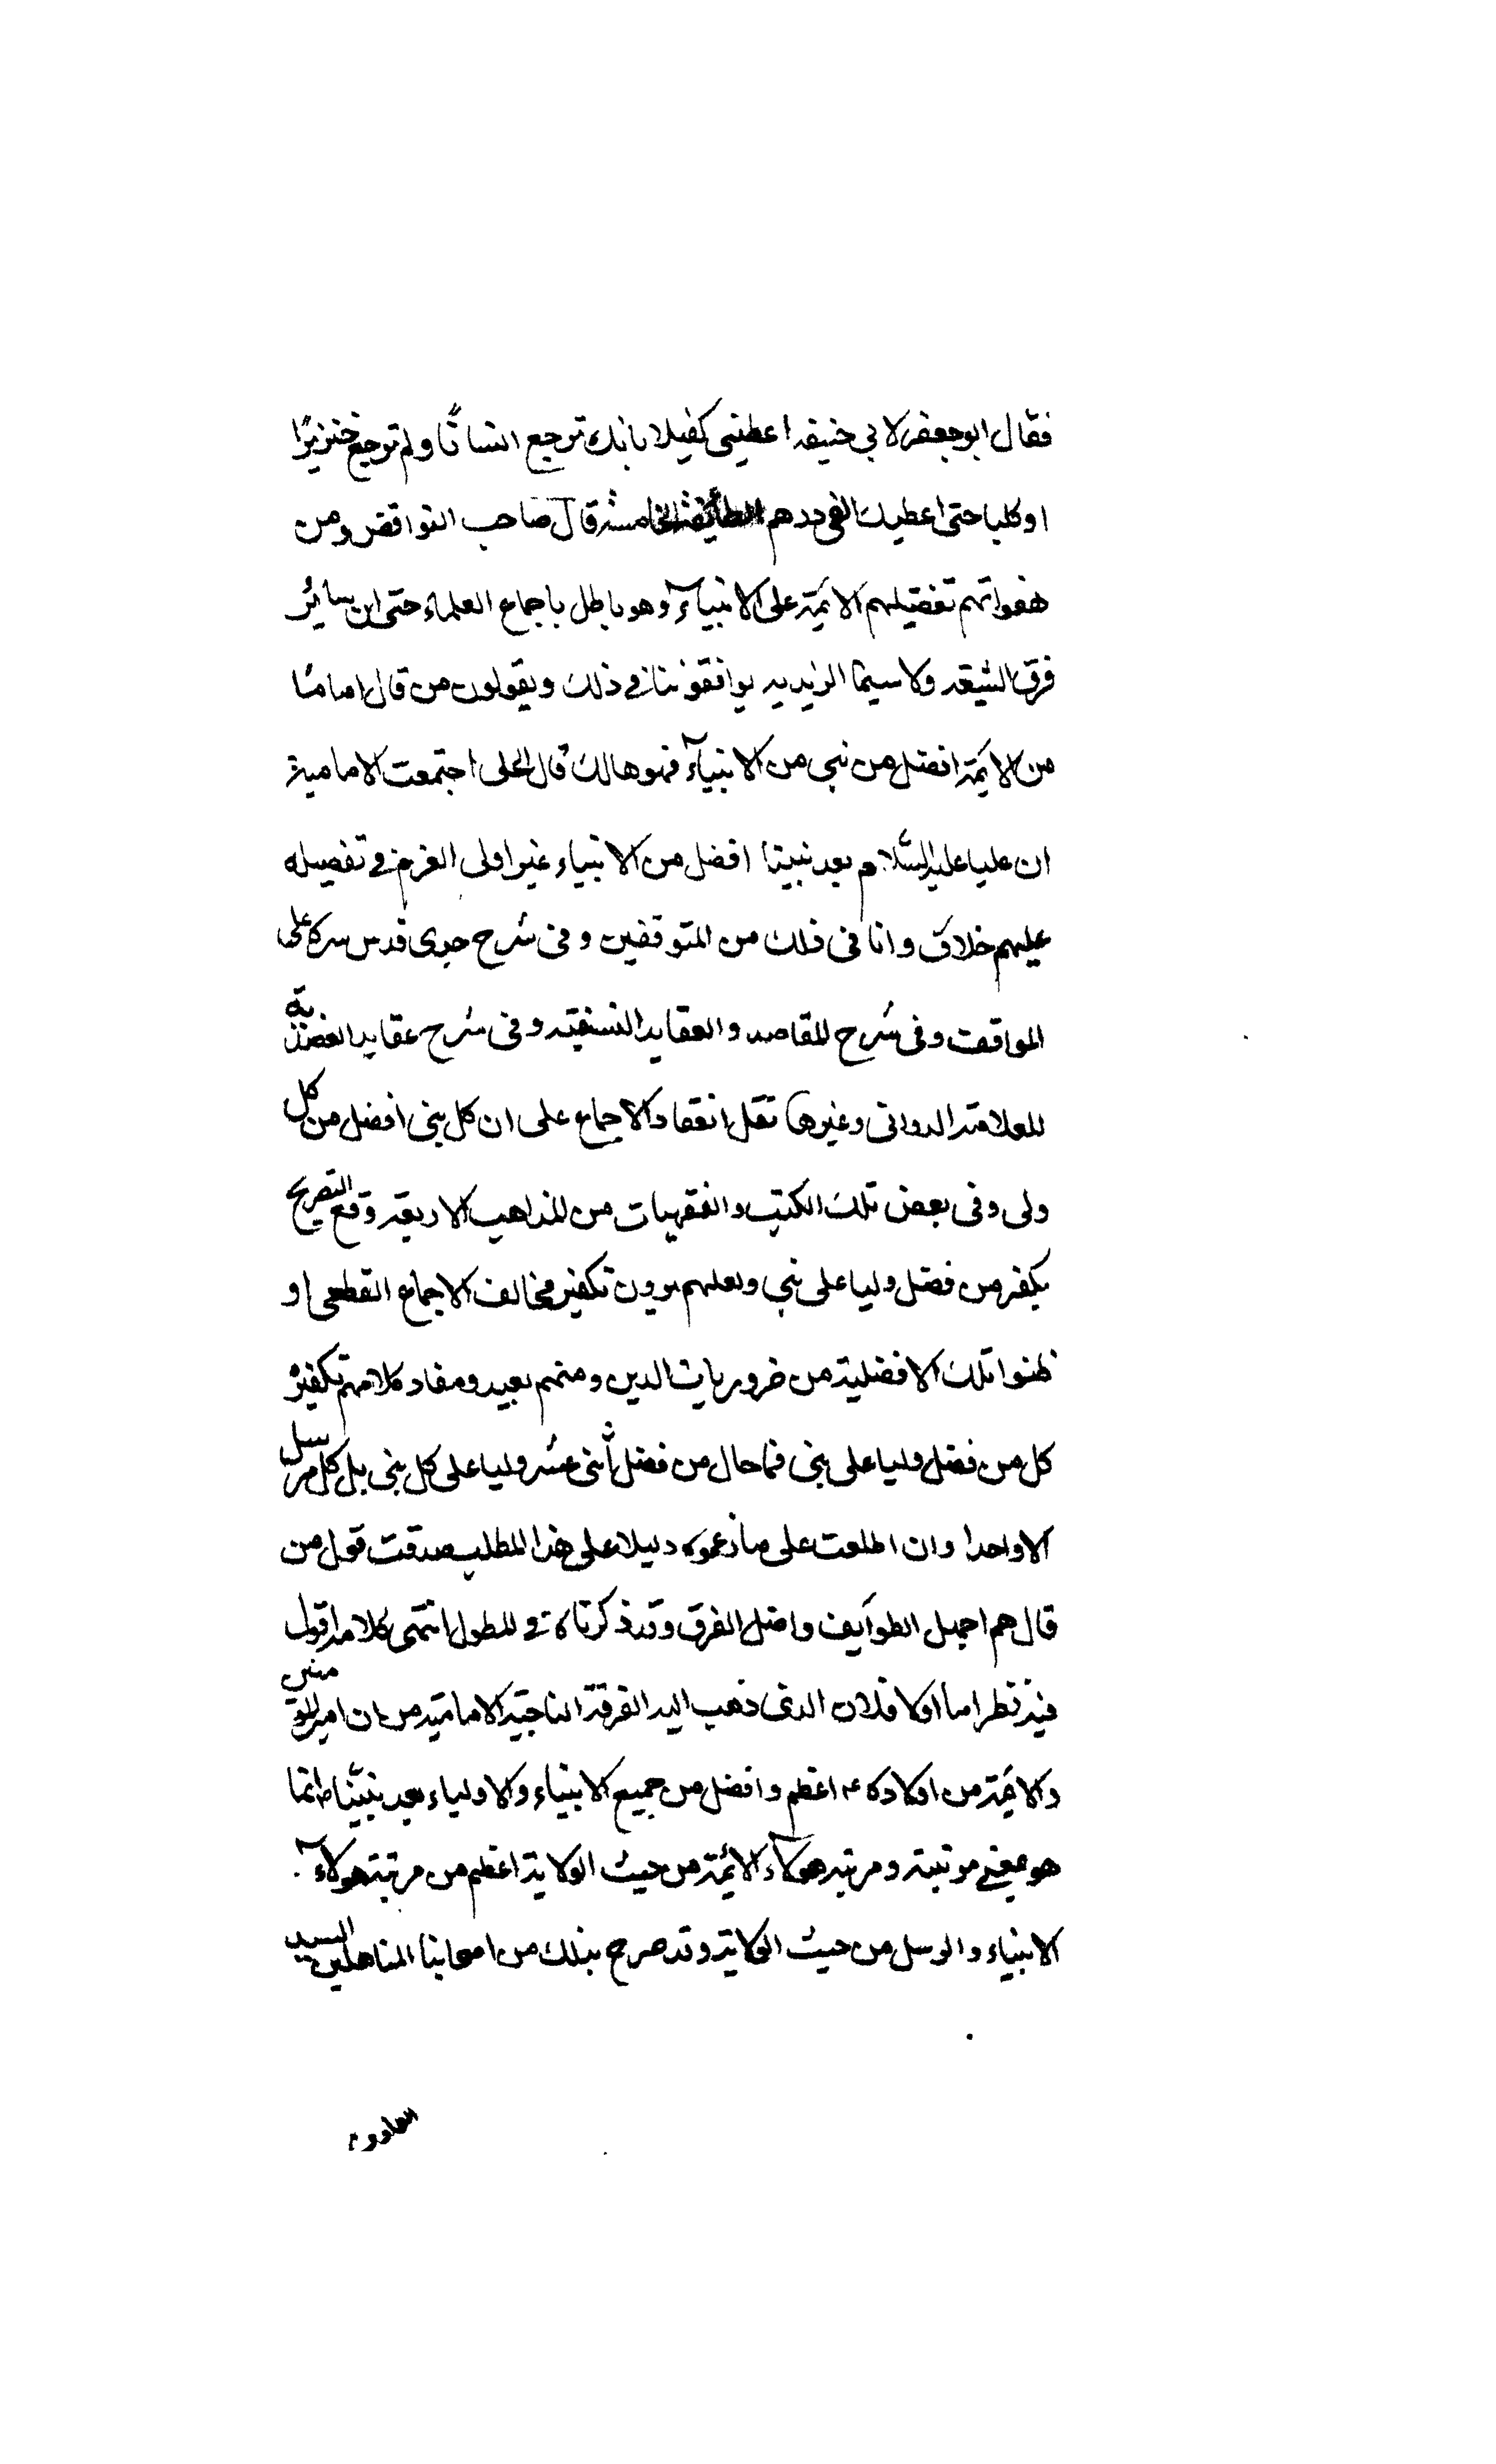 فقال ابو جعفر لابي حنيفه اعطيني كفيلا بانك ترجع انسانًا ولم ترجع خنزيرًا
او كلبا حتى اعطيك الفي درهم الطائفة الخامسة قال صاحب النواقض ومن
هفواتهم تفضيلهم الائمة على الانبيآء وهو باطل باجماع العلماء حتى ان سائر
فرق الشيعه ولا سيما الزيديه يوافقوننا في ذلك ويقولون من قال اماما
من الائمة افضل من نبي من الانبيآء فهو هالك قال الحلي اجتمعت الامامية
ان عليا عليه السّلام بعد نبينا افضل من الانبياء غير اولى العزم وفي تفضيله
عليهم خلاف وانا في ذلك من المتوقفين وفي شرح جدى قدس سره على
المواقف وفي شرح المقاصد والعقايد النسفيه وفي شرح عقايد العضدية
للعلامة الدواني وغيرها نقل انعقاد الاجماع على ان كل نبي افضل من كل
ولى وفي بعض تلك الكتب والفقهيات من المذاهب الاربعة وقع التصريح
بكفر من فضل وليا على نبي ولعلهم يرون تكفير مخالف الاجماع القطعى او
ظنوا تلك الافضلية من ضروريات الدين ومنهم بعيد ومفاد كلامهم تكفير
كل من فضل وليا على نبي فما حال من فضل أثنى عشر وليا على كل نبي بل كل مرسل
الا واحدا وان اطلعت على ما زعموه دليلا على هذا المطلب صدقت قول من
قال هم اجهل الطوآيف واضل الفرق وقد ذكرناه في المطول انتهى كلامه اقول
فيه نظر اما اولا فلان الذي ذهب اليه الفرقة الناجية الامامية من ان امير المؤمنين
والائمة من اولاده ع اعظم وافضل من جميع الانبياء والاولياء بعد نبيّنا ص انما
هو بمعنى مرتبته ومرتبه هولآء الائمة من حيث الولاية اعظم من مرتبة هولآء
الانبياء والرسل من حيث الولاية وقد صرح بذلك من اصحابنا المتاهلين السيد